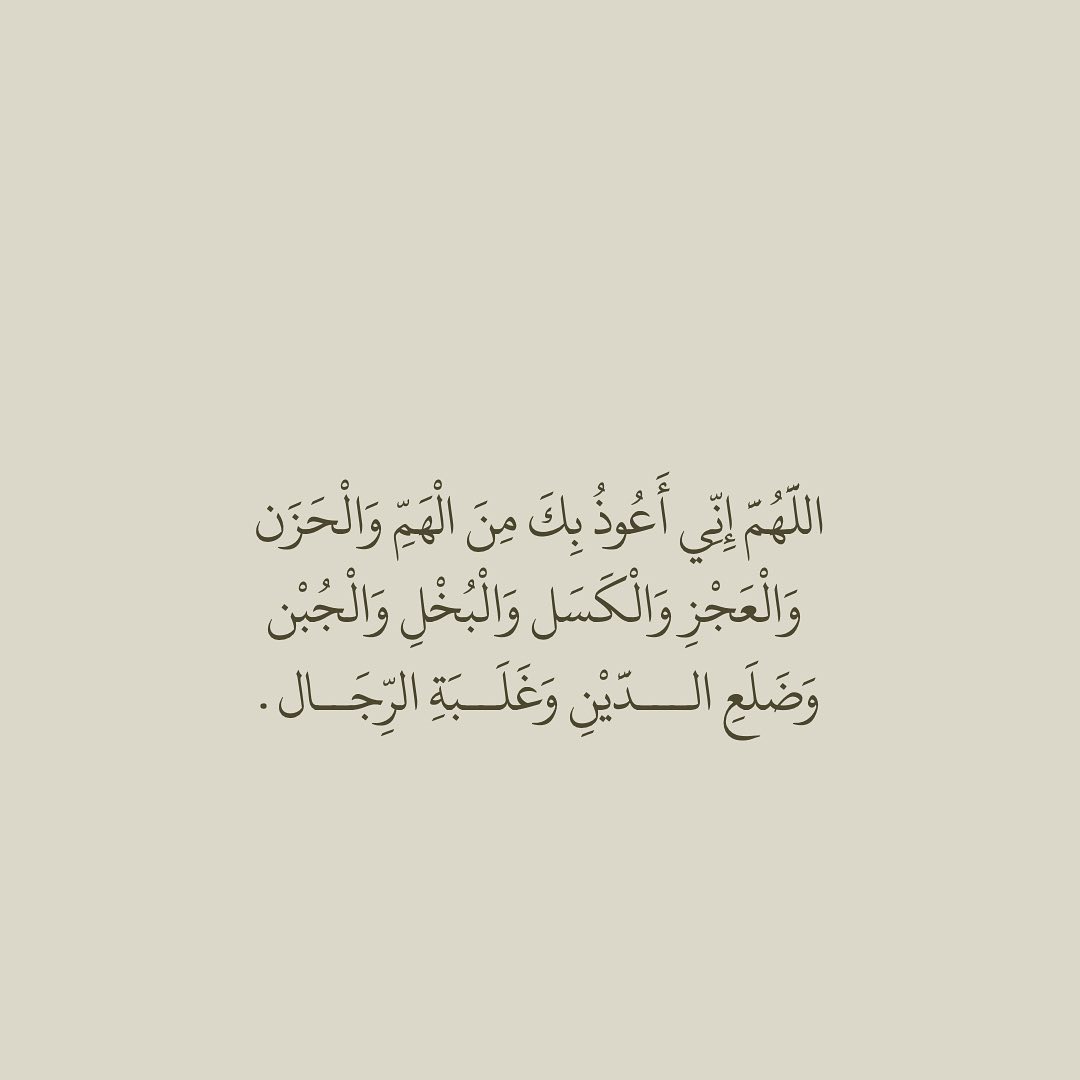 اللَّهُمّ إِنِّي أَعُوذُ بِكَ مِنَ الْهَمِّ وَالْحَزَن
وَالْعَجْزِ وَالْكَسَل وَالْبُخْلِ وَالْجُبْن
وَضَلَعِ الـــدّيْنِ وَغَلَـــبَةِ الرِّجَـــال .